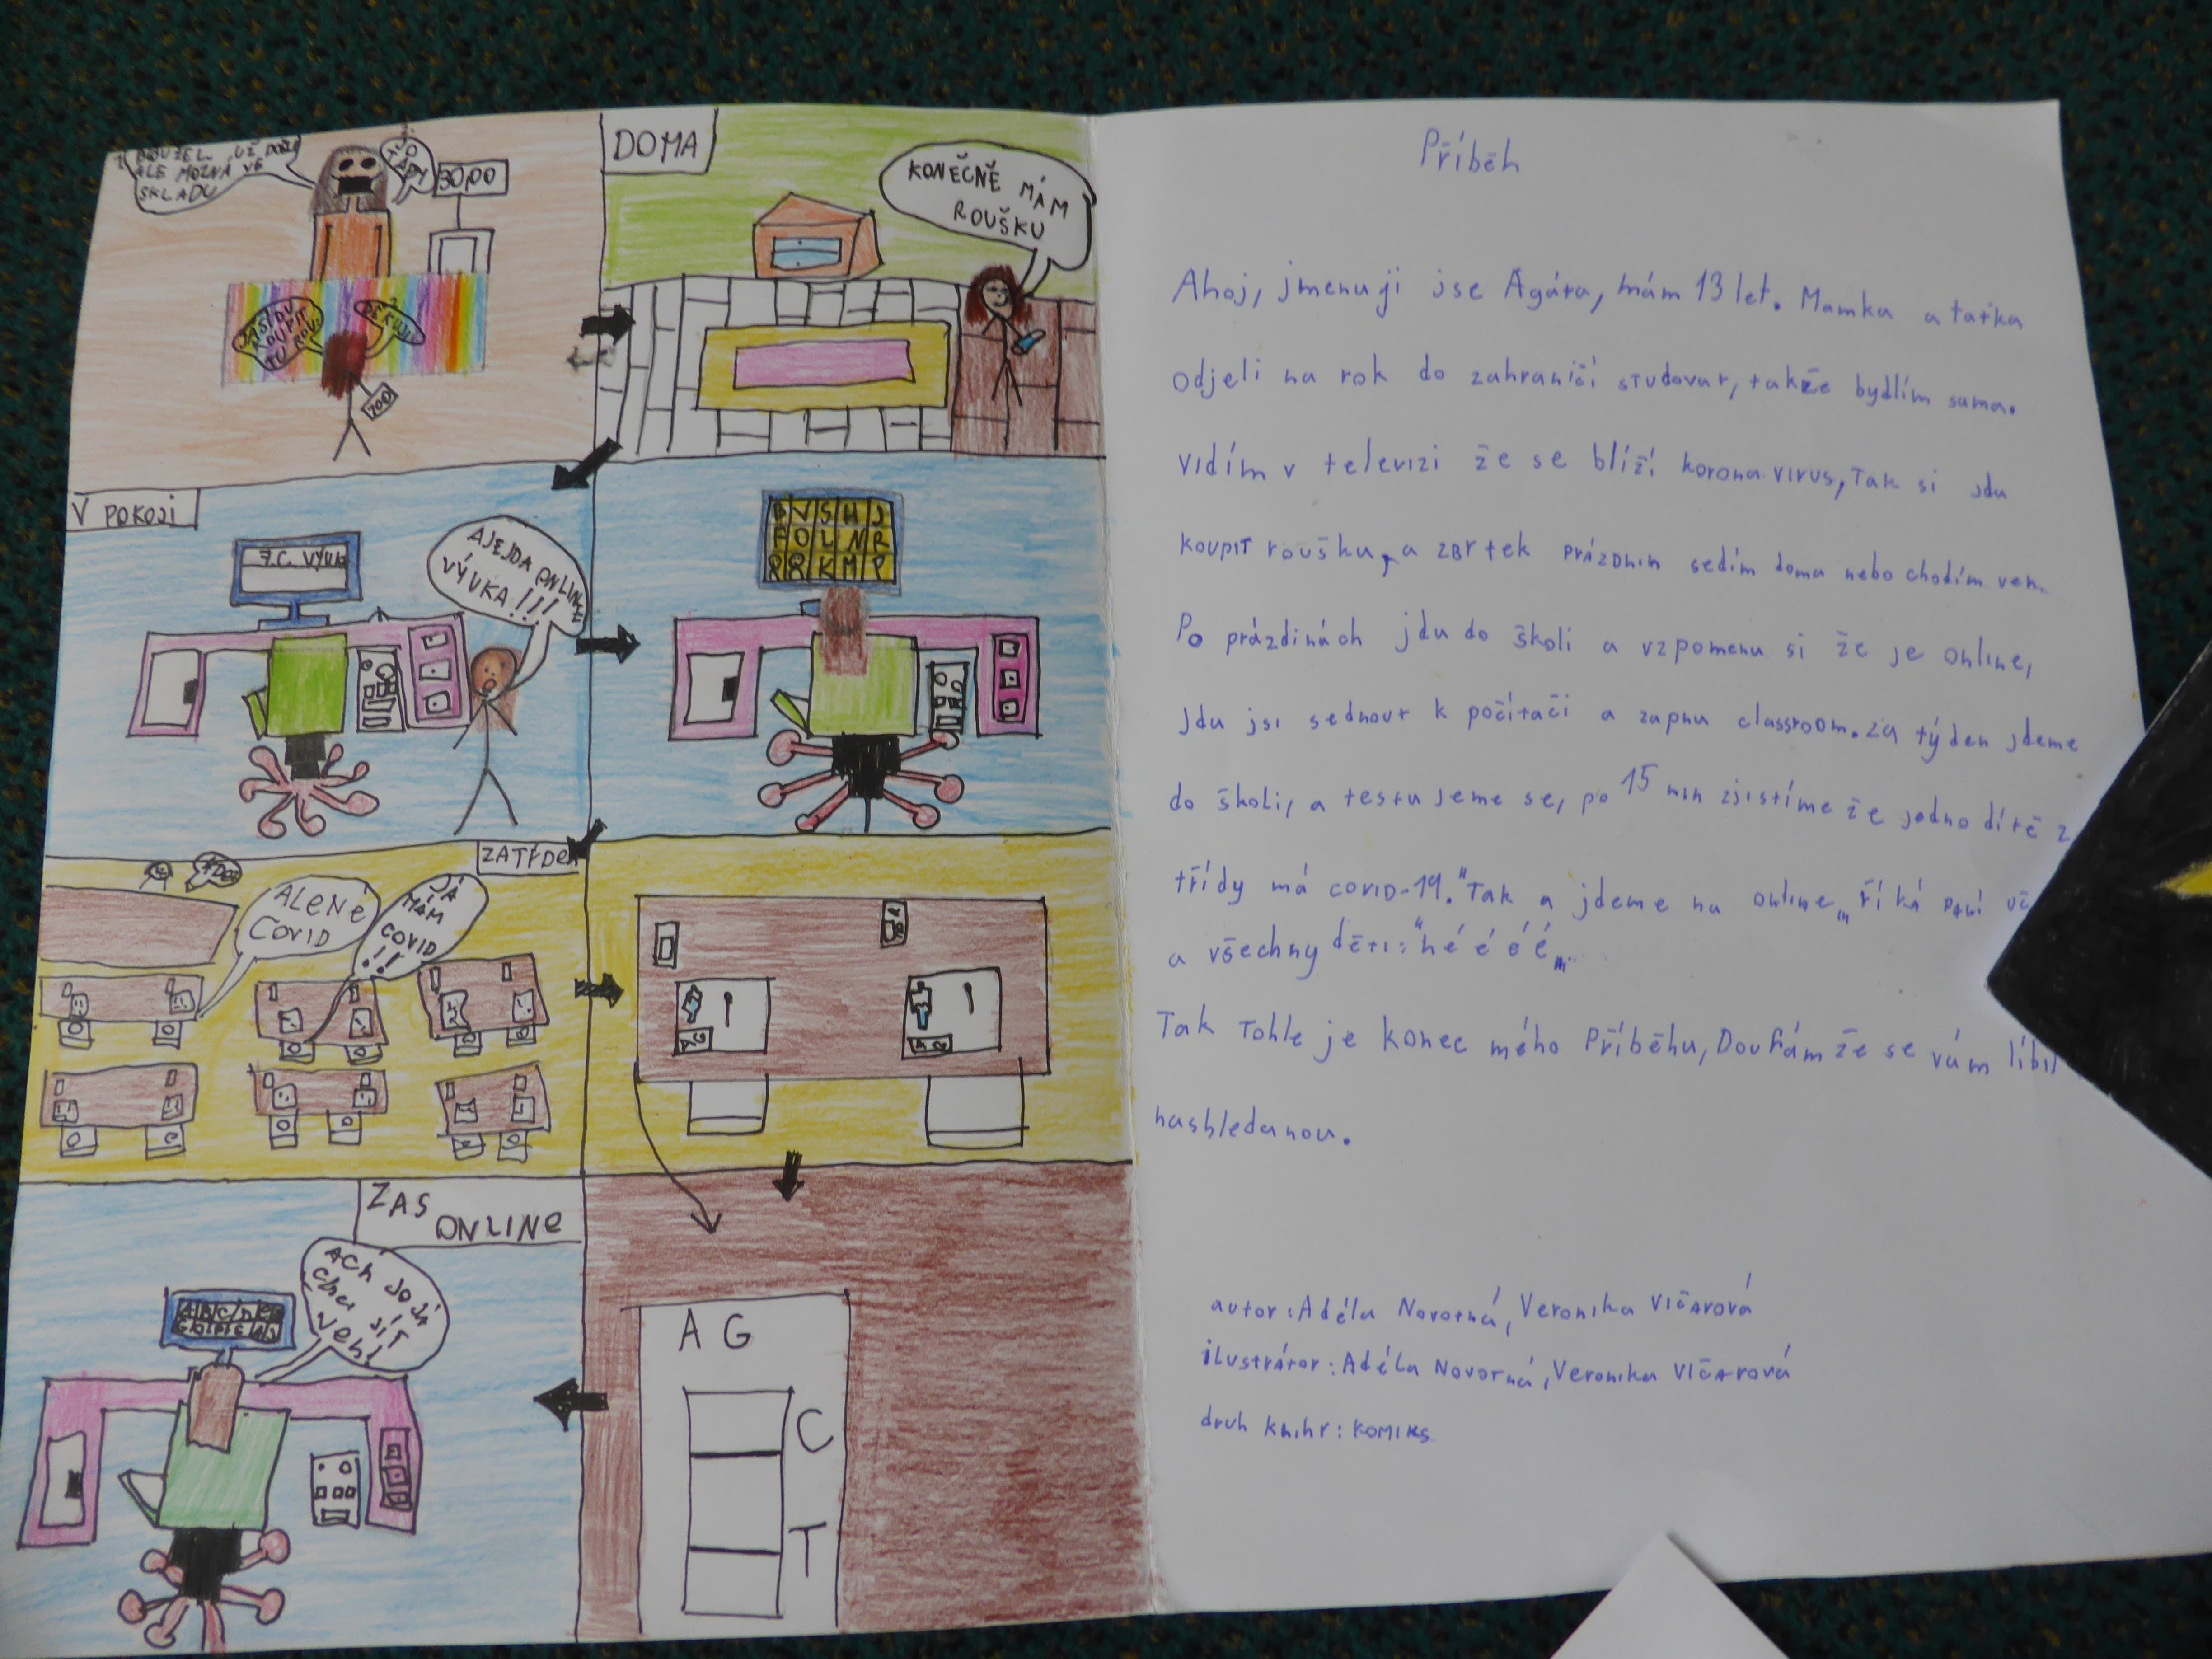 BOUŽEL UŽ
ALE MOŽNÁ VE
SKLADU
JO
TADY
3000
JÁ SI JDU
KOUPIT
TU ROU.
DĚKUJU
700
DOMA
KONEČNĚ MÁM
ROUŠKU
V POKOJI
7.C. VÝUK
AJEJDA ONLINE
VÝUKA!!!
B V S H J
F O L N R
R Q K M P
ZA TÝDEN
ALE NÉ
COVID
JÁ
MÁM
COVID
!!!
ZAS
ONLINE
ACH JO JÁ
CHCI JÍT
VEN!
A B C D
AG
C
T
Příběh
Ahoj, jmenuji jse Agáta, mám 13 let. Mamka a taťka
odjeli na rok do zahraničí studovat, takže bydlím sama.
vidím v televizi že se blíží korona virus, Tak si jdu
koupit roušku, a zbrtek prázdnin sedím doma nebo chodím ven.
Po prázdinách jdu do školi a vzpomenu si že je online,
Jdu jsi sednout k počítači a zapnu classroom. za týden jdeme
do školi, a testujeme se, po 15 min zjistíme že jedno dítě z
třídy má covid-19. "Tak a jdeme na online" říká paní uč
a všechny děti: "né é é é".
Tak Tohle je konec mého Příběhu, Doufám že se vám líbil
nashledanou.
autor: Adéla Novotná, Veronika Vlčarová
ilustrátor: Adéla Novotná, Veronika Vlčarová
druh knihy: komiks